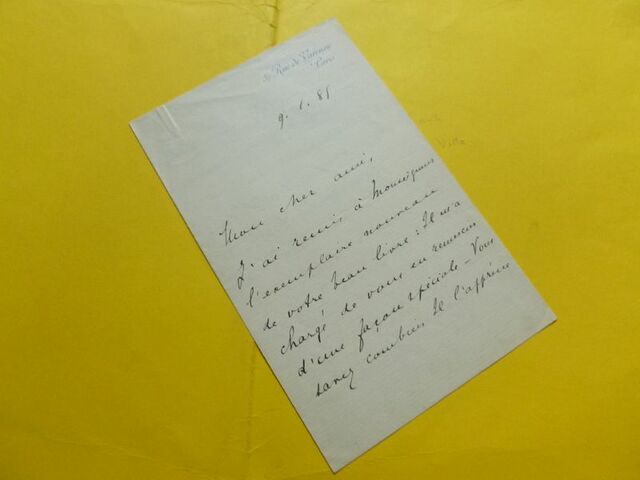 Rue de Varenne
Paris
9. 6. 85
Mon cher ami,
J'ai remis à Monseigneur
l'exemplaire nouveau
de votre beau livre : Il m'a
chargé de vous en remercier
d'une façon spéciale - Vous
savez combien Il l'apprécie